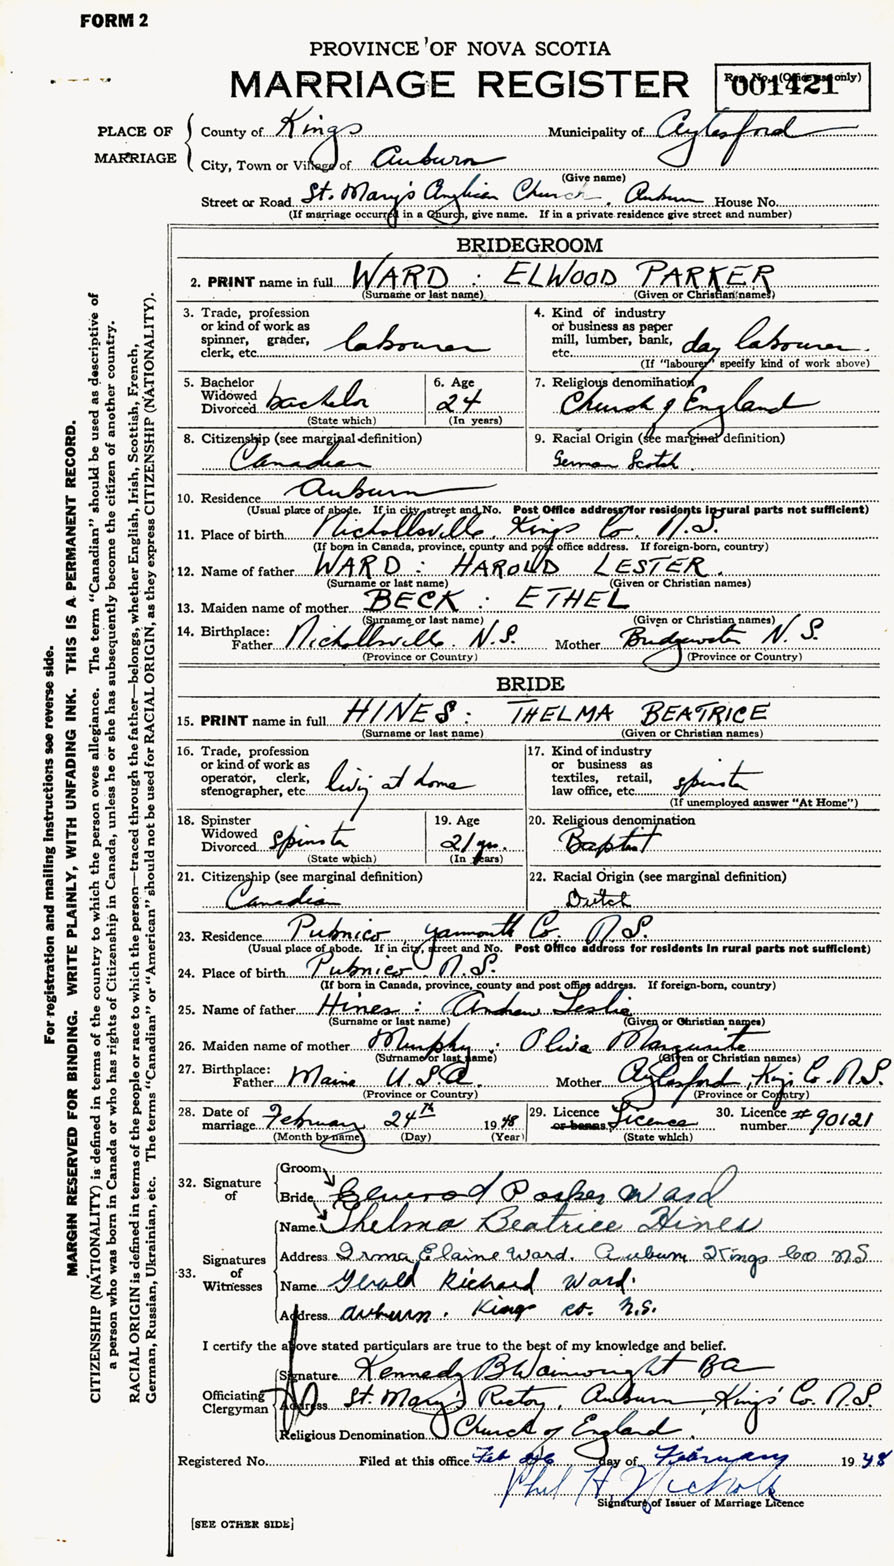 FORM 2
PROVINCE OF NOVA SCOTIA
MARRIAGE REGISTER
Reg. No. (Office use only)
001421
PLACE OF MARRIAGE
County of Kings Municipality of Aylesford
City, Town or Village of Auburn
(Give name)
Street or Road St. Mary's Anglican Church, Auburn House No.
(If marriage occurred in a Church, give name. If in a private residence give street and number)
BRIDEGROOM
2. PRINT name in full WARD : ELWOOD PARKER
(Surname or last name) (Given or Christian names)
3. Trade, profession or kind of work as spinner, grader, clerk, etc. labourer
4. Kind of industry or business as paper mill, lumber, bank, etc. day labourer
(If "labourer" specify kind of work above)
5. Bachelor Widowed Divorced bachelor
(State which)
6. Age 24
(In years)
7. Religious denomination Church of England
8. Citizenship (see marginal definition) Canadian
9. Racial Origin (see marginal definition) German Scotch
10. Residence Auburn
(Usual place of abode. If in city street and No. Post Office address for residents in rural parts not sufficient)
11. Place of birth Nichollsville, Kings Co. N.S.
(If born in Canada, province, county and post office address. If foreign-born, country)
12. Name of father WARD : HAROLD LESTER.
(Surname or last name) (Given or Christian names)
13. Maiden name of mother BECK : ETHEL
(Surname or last name) (Given or Christian names)
14. Birthplace: Father Nichollsville N.S. Mother Bridgewater N.S.
(Province or Country) (Province or Country)
BRIDE
15. PRINT name in full HINES : THELMA BEATRICE
(Surname or last name) (Given or Christian names)
16. Trade, profession or kind of work as operator, clerk, stenographer, etc. livig at home
17. Kind of industry or business as textiles, retail, law office, etc. spinster
(If unemployed answer "At Home")
18. Spinster Widowed Divorced spinster
(State which)
19. Age 21 yrs.
(In years)
20. Religious denomination Baptist
21. Citizenship (see marginal definition) Canadian
22. Racial Origin (see marginal definition) Dutch
23. Residence Pubnico Yarmouth Co. N.S.
(Usual place of abode. If in city, street and No. Post Office address for residents in rural parts not sufficient)
24. Place of birth Pubnico N.S.
(If born in Canada, province, county and post office address. If foreign-born, country)
25. Name of father Hines : Andrew Leslie
(Surname or last name) (Given or Christian names)
26. Maiden name of mother Murphy : Olive Marguerite
(Surname or last name) (Given or Christian names)
27. Birthplace: Father Maine U.S.A. Mother Aylesford, Kings Co. N.S.
(Province or Country) (Province or Country)
28. Date of marriage February 24th 1948
(Month by name) (Day) (Year)
29. Licence or banns Licence
(State which)
30. Licence number # 90121
32. Signature of
Groom
Bride Elwood Parker Ward
33. Signatures of Witnesses
Name Thelma Beatrice Hines
Address Irma Elaine Ward. Auburn Kings Co NS
Name Gerald Richard Ward.
Address Auburn. Kings co. N.S.
I certify the above stated particulars are true to the best of my knowledge and belief.
Officiating Clergyman
Signature Kennedy B Wainwright BA
Address St. Mary's Rectory, Auburn Kings' Co. N.S.
Religious Denomination Church of England
Registered No. Filed at this office Feb 26 day of February 1948
Phil H Nichols
Signature of Issuer of Marriage Licence
[SEE OTHER SIDE]
For registration and mailing instructions see reverse side.
MARGIN RESERVED FOR BINDING. WRITE PLAINLY, WITH UNFADING INK. THIS IS A PERMANENT RECORD.
CITIZENSHIP (NATIONALITY) is defined in terms of the country to which the person owes allegiance. The term "Canadian" should be used as descriptive of
a person who was born in Canada or who has rights of Citizenship in Canada, unless he or she has subsequently become the citizen of another country.
RACIAL ORIGIN is defined in terms of the people or race to which the person—traced through the father—belongs, whether English, Irish, Scottish, French,
German, Russian, Ukrainian, etc. The terms "Canadian" or "American" should not be used for RACIAL ORIGIN, as they express CITIZENSHIP (NATIONALITY).